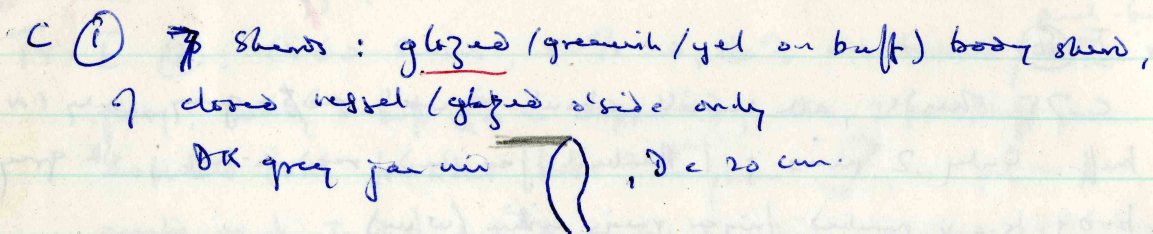 C ① sherds : glazed (greenish/yel on buff) body sherd,
of closed vessel (glazed o'side only
DK grey jar rim , D c 20 cm.